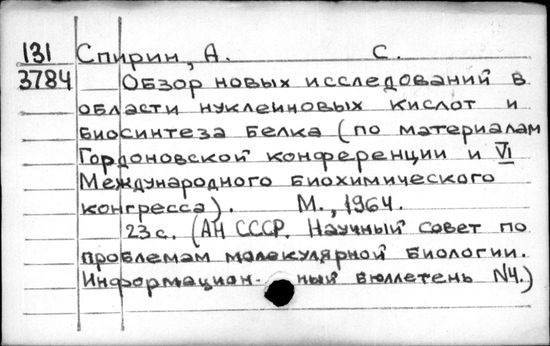 131 Спирин, А. С.
3784 Обзор новых исследований в
области нуклеиновых кислот и
биосинтеза белка (по материалам
Гордоновской конференции и VI
Международного биохимического
конгресса). М., 1964.
23 с. (АН СССР. Научный совет по
проблемам молекулярной биологии.
Информацион- ный бюллетень №4.)